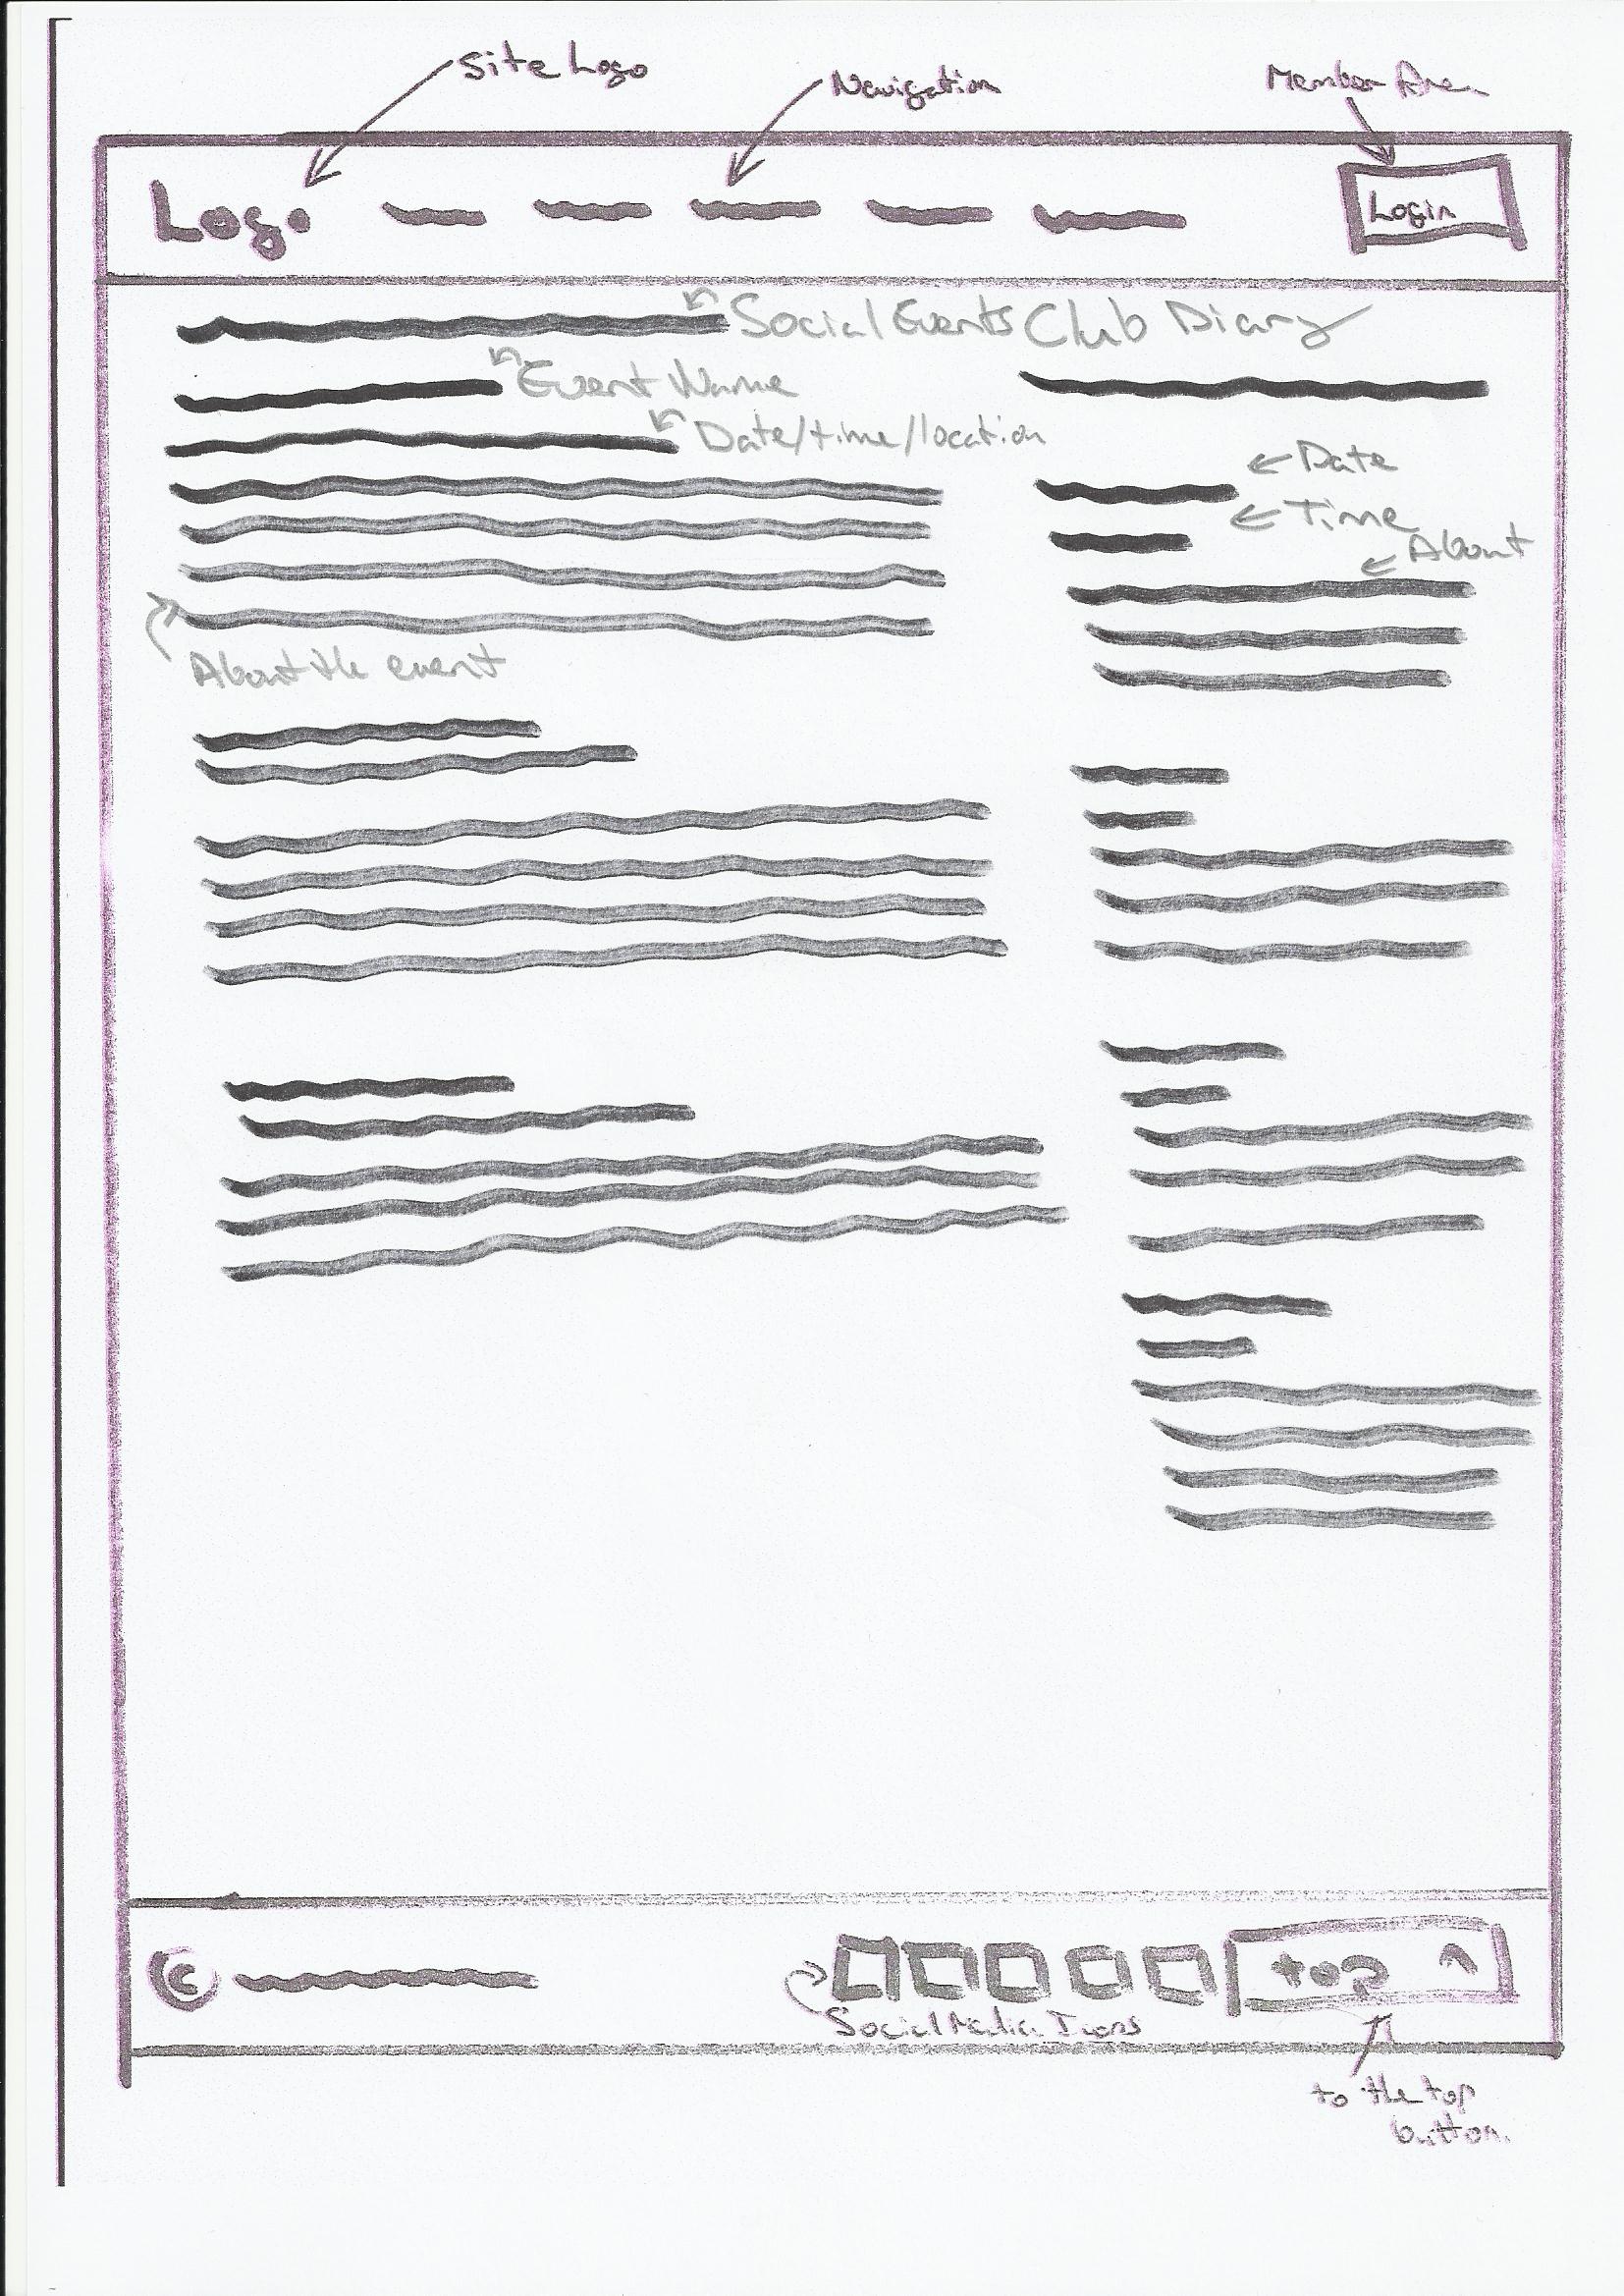 Site Logo
Navigation
Member Area
Logo
Login
Social Events Club Diary
Event Name
Date/time/location
← Date
← Time
← About
About the event
©
top ^
Social Media Icons
to the top
button.